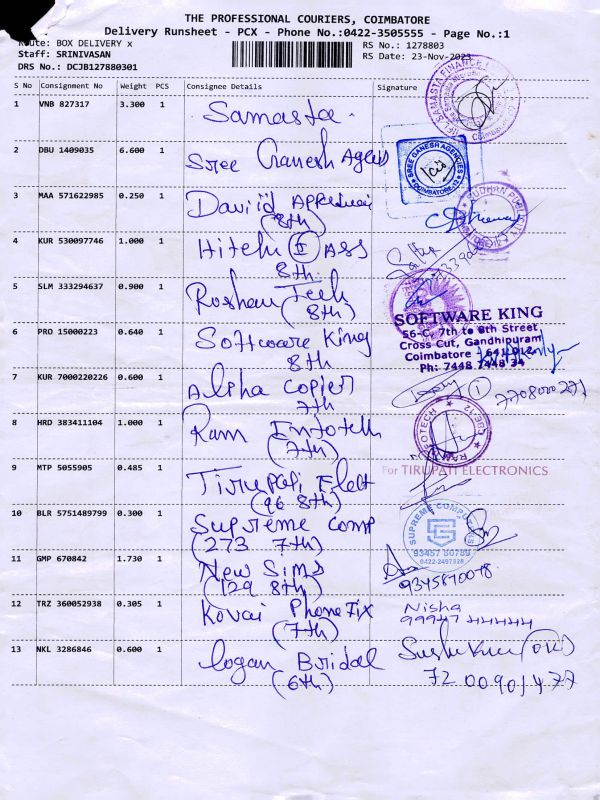 THE PROFESSIONAL COURIERS, COIMBATORE
Delivery Runsheet - PCX - Phone No.:0422-3505555 - Page No.:1
Route: BOX DELIVERY x
RS No.: 1278803
Staff: SRINIVASAN
RS Date: 23-Nov-2023
DRS No.: DCJB127880301
S No Consignment No Weight PCS Consignee Details Signature
1 VNB 827317 3.300 1 Samasta
2 DBU 1409035 6.600 1 Sree Ganesh
SREE GANESH AGENCIES
COIMBATORE-12
3 MAA 571622985 0.250 1 David
(8th)
4 KUR 530097746 1.000 1 Hitech
8th
5 SLM 333294637 0.900 1 Roshan Tech
(8th)
SOFTWARE KING
56-C, 7th to 8th Street
Cross Cut, Gandhipuram
Coimbatore - 641 012
Ph: 7448 7448 34
6 PRO 15000223 0.640 1 Software King
8th
7 KUR 7000220226 0.600 1 Alpha Copier
7th
7708000271
8 HRD 383411104 1.000 1 Ram Infotech
(7th)
9 MTP 5055905 0.485 1 Tirupati Elect
(96 8th)
For TIRUPATI ELECTRONICS
10 BLR 5751489799 0.300 1 Supreme Comp
(273 7th)
SUPREME COMPUTERS
93457 80789
0422-2497828
11 GMP 670842 1.730 1 New Sims
(129 8th)
9345870078
12 TRZ 360052938 0.305 1 Kovai Phone Fix
(7th)
Nisha
99947 44444
13 NKL 3286846 0.600 1 Logan Bridal
(6th)
72 00901477